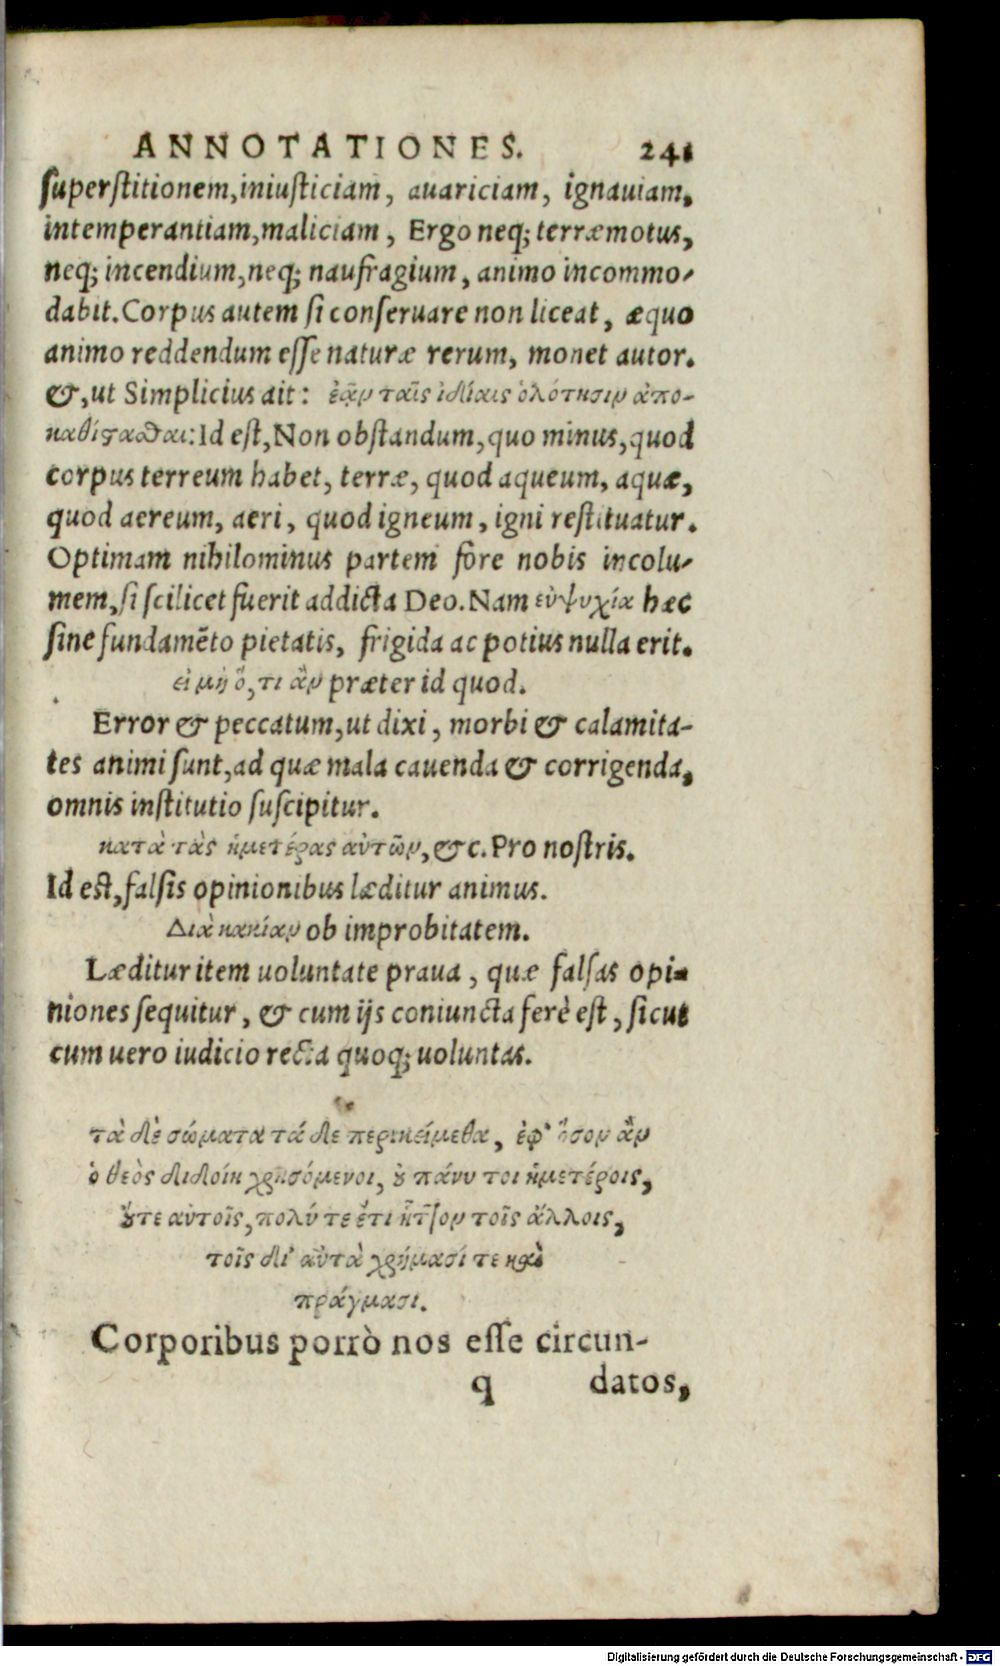 ANNOTATIONES. 241
superstitionem, iniusticiam, auariciam, ignauiam,
intemperantiam, maliciam, Ergo neq; terræmotus,
neq; incendium, neq; naufragium, animo incommo-
dabit. Corpus autem si conseruare non liceat, æquo
animo reddendum esse naturæ rerum, monet autor.
&, ut Simplicius ait: ἐᾷν ταῖς ἰδίαις ὁλότησιν ἀπο-
καθίστασθαι: Id est, Non obstandum, quo minus, quod
corpus terreum habet, terræ, quod aqueum, aquæ,
quod aereum, aeri, quod igneum, igni restituatur.
Optimam nihilominus partem fore nobis incolu-
mem, si scilicet fuerit addicta Deo. Nam εὐψυχία hæc
sine fundamēto pietatis, frigida ac potius nulla erit.
εἰ μὴ ὅ, τι ἂν præter id quod.
Error & peccatum, ut dixi, morbi & calamita-
tes animi sunt, ad quæ mala cauenda & corrigenda,
omnis institutio suscipitur.
κατὰ τὰς ἡμετέρας αὐτῶν, &c. Pro nostris.
Id est, falsis opinionibus læditur animus.
Διὰ κακίαν ob improbitatem.
Læditur item uoluntate praua, quæ falsas opi-
niones sequitur, & cum ijs coniuncta ferè est, sicut
cum uero iudicio recta quoq; uoluntas.
τὰ δὲ σώματα τά δε περικείμεθα, ἐφ' ὅσον ἂν
ὁ θεὸς διδοίη χρησόμενοι, ȣ πάνυ τοι ἡμετέροις,
ȣ̓τε αὐτοῖς, πολύ τε ἔτι ἧττον τοῖς ἄλλοις,
τοῖς δι' αὐτὰ χρήμασί τε καὶ
πράγμασι.
Corporibus porrò nos esse circun-
q datos,
Digitalisierung gefördert durch die Deutsche Forschungsgemeinschaft - DFG